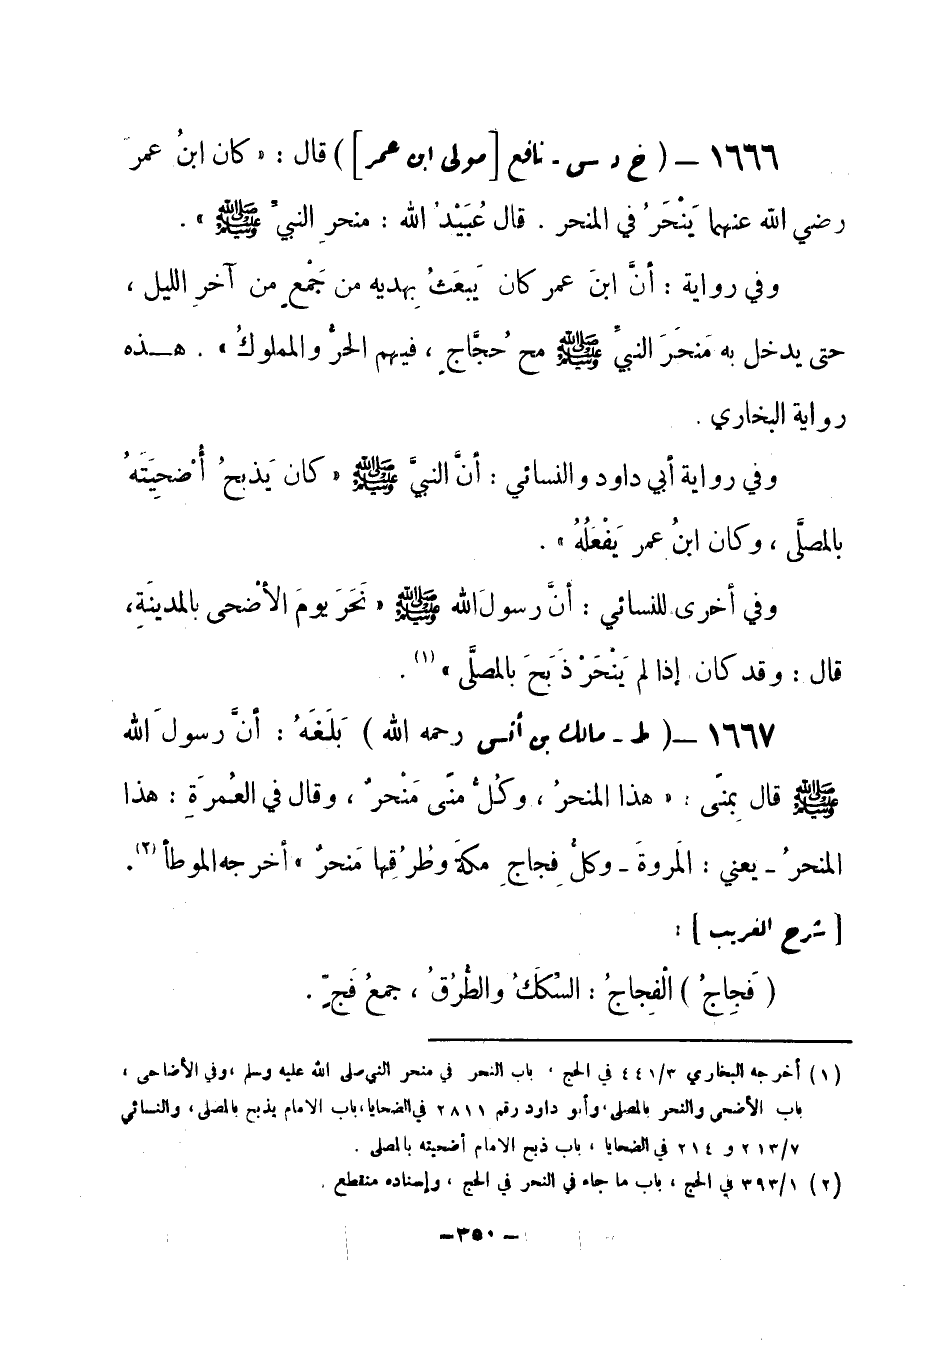 ١٦٦٦ – ( خ د س - نافع [ مولى ابن عمر ] ) قال : « كان ابنُ عمرَ
رضي الله عنهما يَنْحَرُ في المنحر . قال عُبَيْدُ الله : منحرِ النبيِّ ﷺ » .
وفي رواية : أنَّ ابنَ عمر كان يَبعَثُ بِهديه من جَمْعٍ من آخرِ الليل ،
حتى يدخل به مَنحَرَ النبيِّ ﷺ مع حُجَّاجٍ ، فيهم الحرُّ والمملوكُ » . هـــذه
رواية البخاري .
وفي رواية أبي داود والنسائي : أنَّ النبيَّ ﷺ « كان يَذبحُ أُضحِيَتَهُ
بالمصلَّى ، وكان ابنُ عمر يَفْعَلُهُ » .
وفي أخرى للنسائي : أنَّ رسولَ الله ﷺ « نَحَرَ يومَ الأضْحى بالمدينَةِ،
قال : وقد كان إذا لم يَنْحَرْ ذَبَحَ بالمصلَّى » (١) .
١٦٦٧ – ( ط - مالك بن أنس رحمه الله ) بَلَغَهُ : أنَّ رسولَ الله
ﷺ قال بِمنًى : « هذا المنحرُ ، وكُلُّ منًى مَنْحرٌ ، وقال في العُمرَةِ : هذا
المنحرُ - يعني : المَروةَ - وكلُّ فِجاجِ مكةَ وطُرُقِها مَنحرٌ » أخرجه الموطأ (٢) .
[ شرح الغريب ] :
( فِجاجُ ) الْفِجاجُ : السِّكَكُ والطُّرُقُ ، جمعُ فَجٍّ .
(١) أخرجه البخاري ٤٤١/٣ في الحج ، باب النحر في منحر النبي صلى الله عليه وسلم ، وفي الأضاحي ،
باب الأضحى والنحر بالمصلى ، وأبو داود رقم ٢٨١١ في الضحايا ، باب الامام يذبح بالمصلى ، والنسائي
٢١٣/٧ و ٢١٤ في الضحايا ، باب ذبح الامام أضحيته بالمصلى .
(٢) ٣٩٣/١ في الحج ، باب ما جاء في النحر في الحج ، وإسناده منقطع .
– ٣٥٠ –